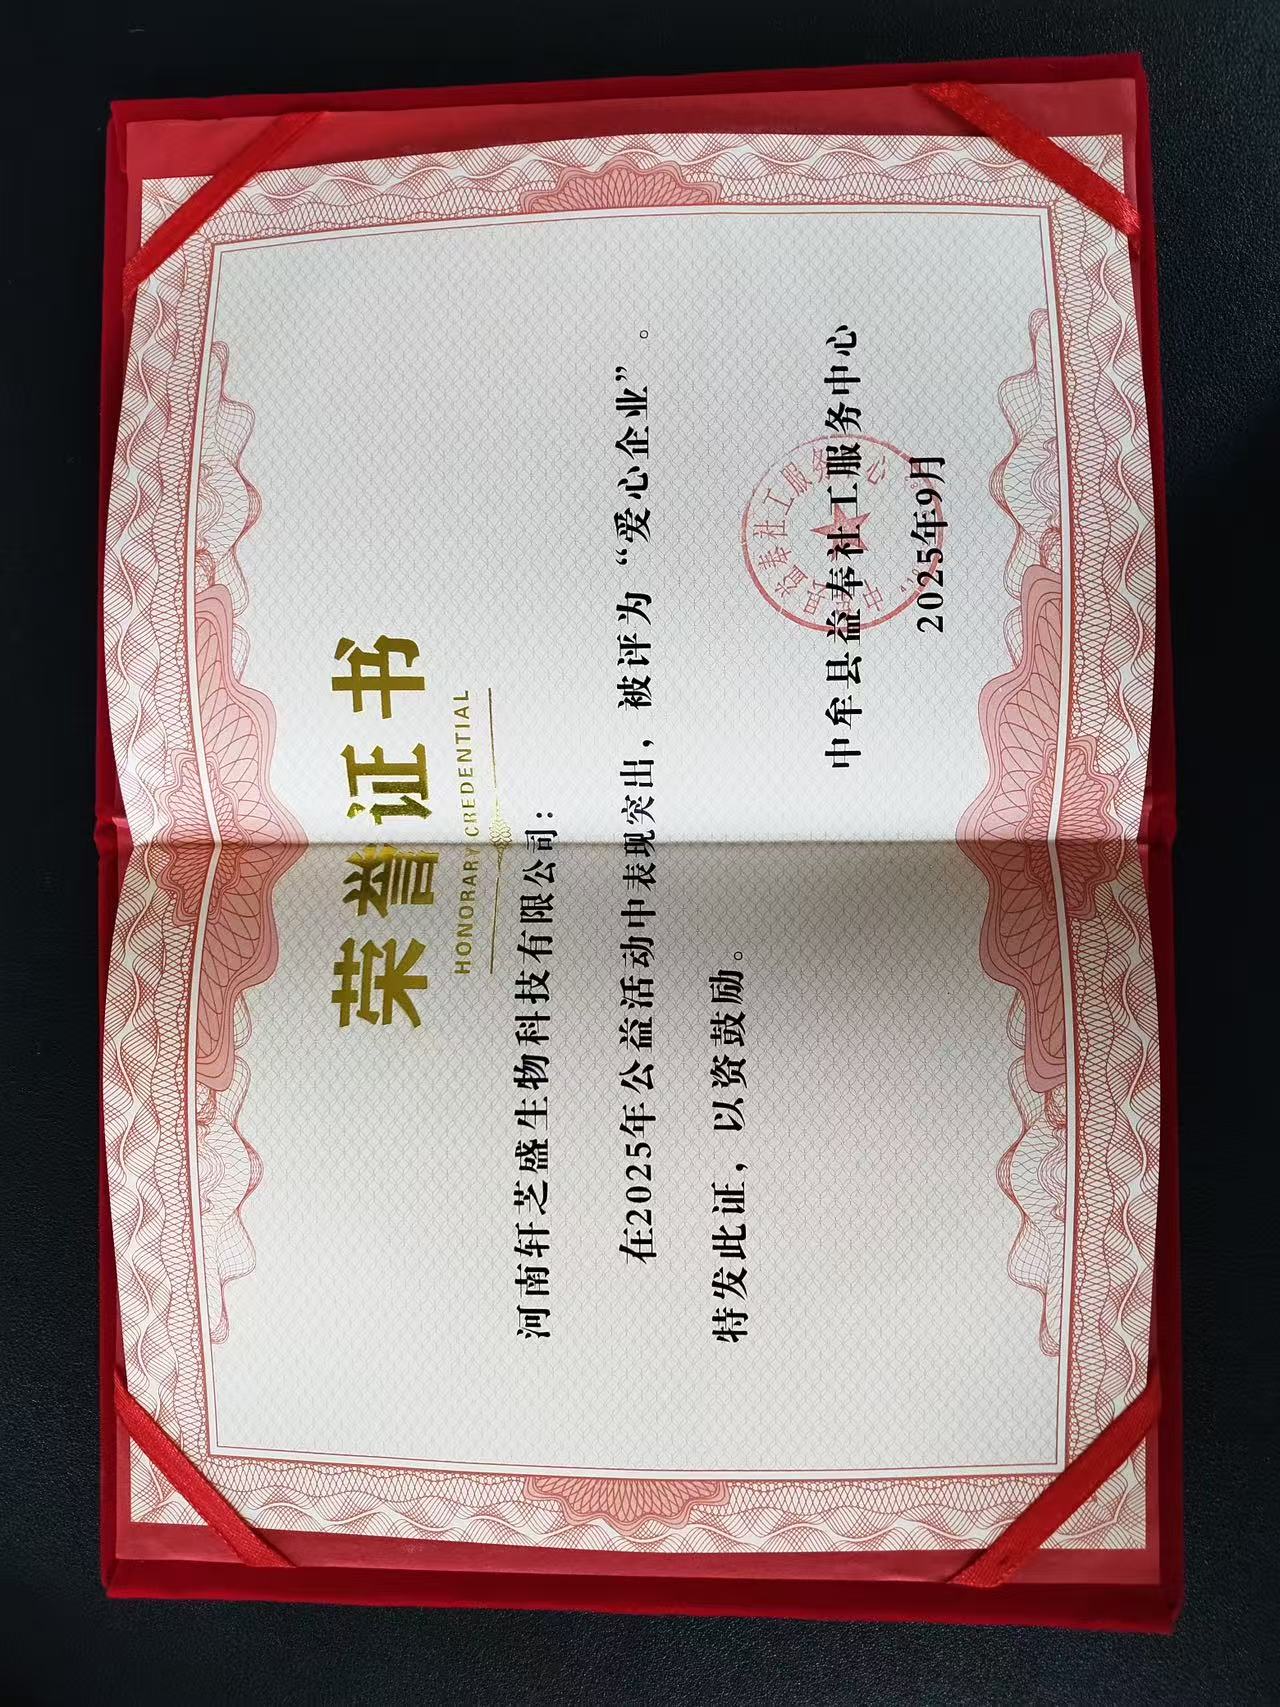 荣誉证书
HONORARY CREDENTIAL
河南轩芝盛生物科技有限公司：
在2025年公益活动中表现突出，被评为“爱心企业”。
特发此证，以资鼓励。
中牟县益奉社工服务中心
2025年9月